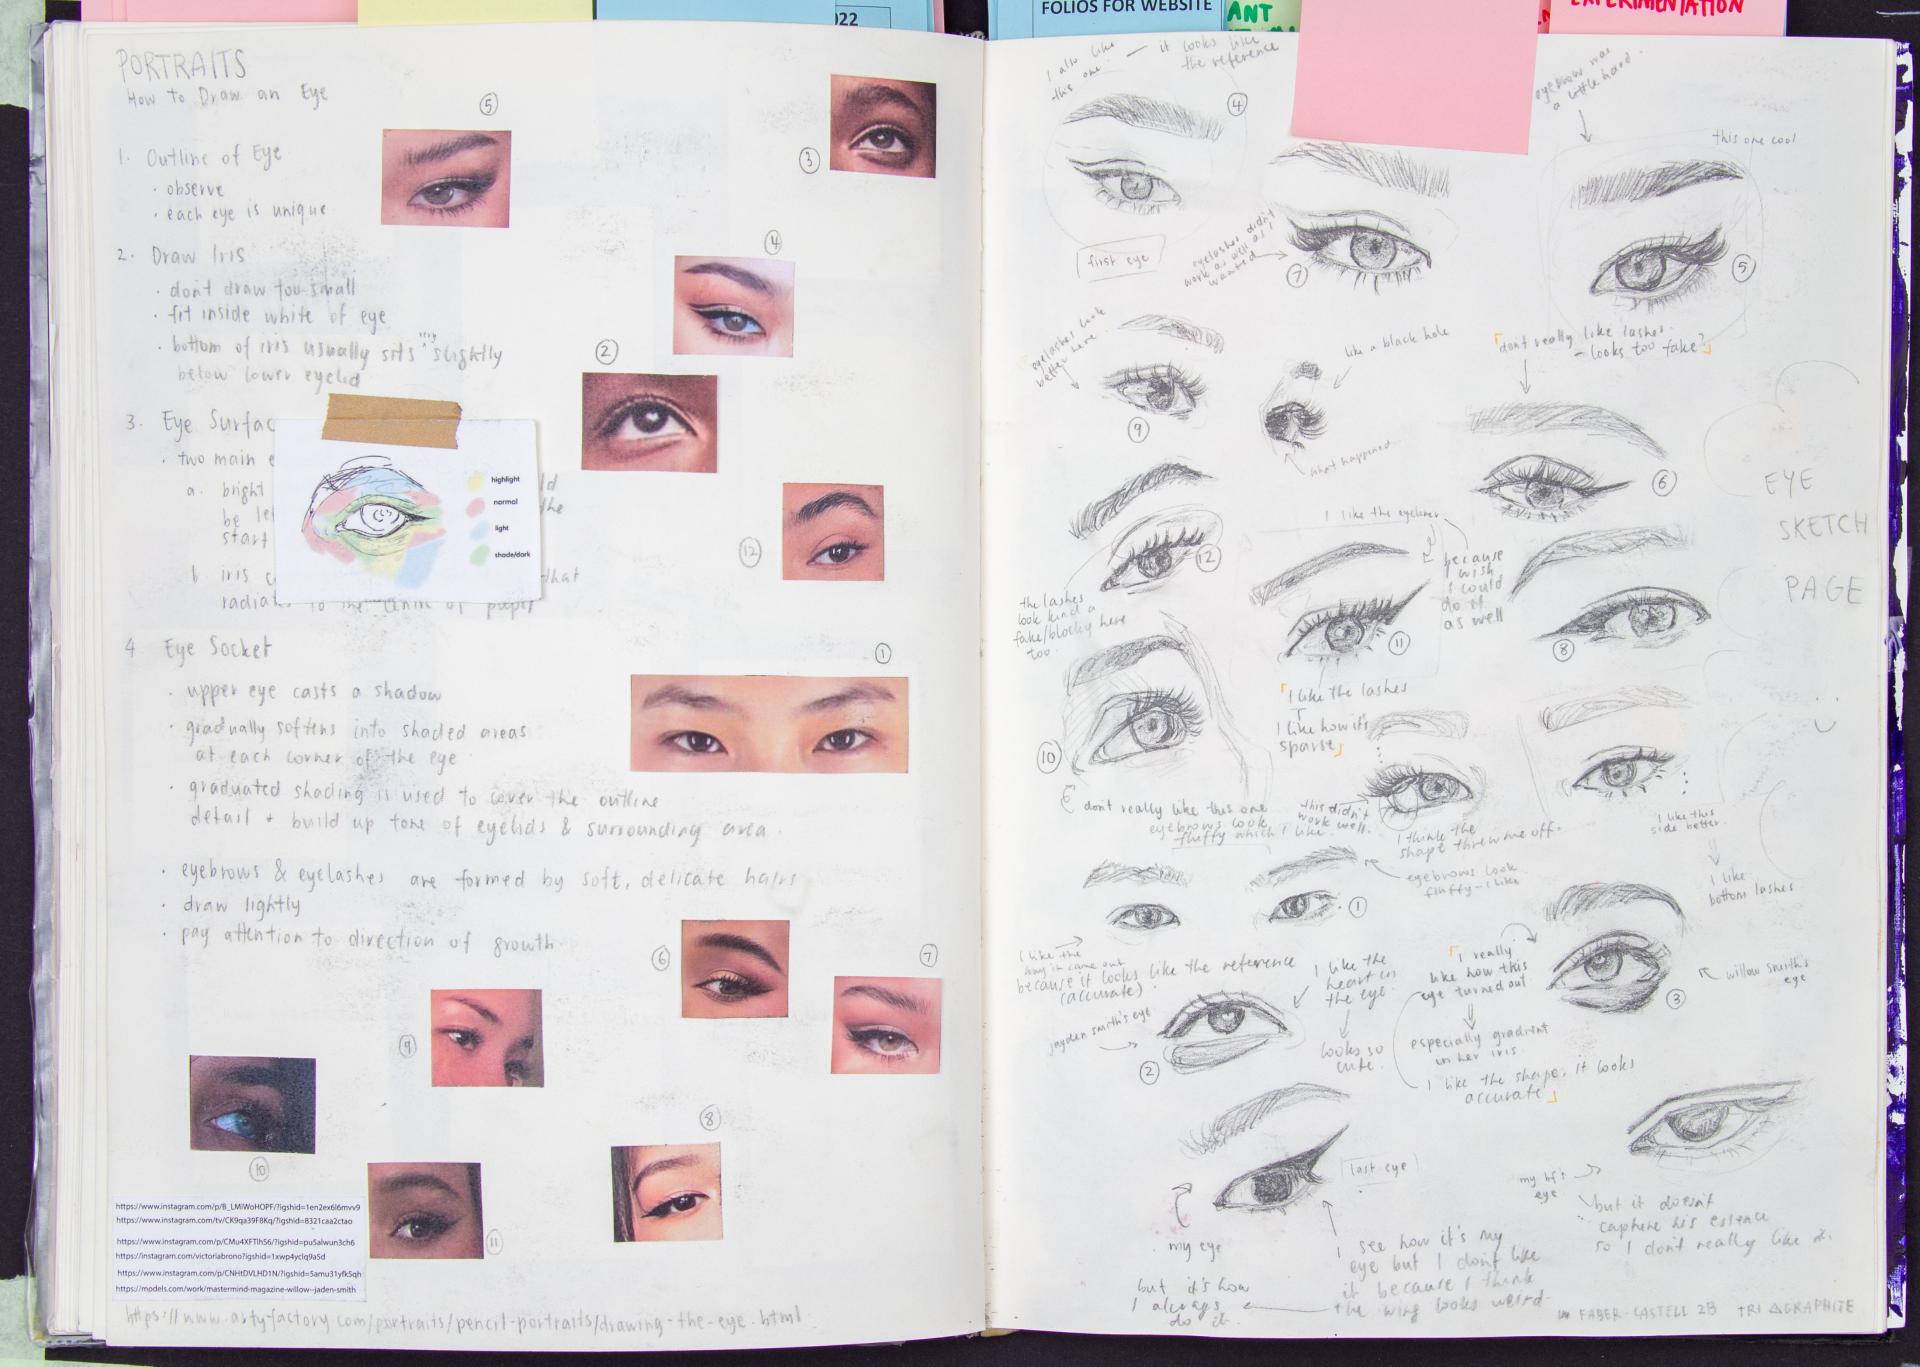 022
FOLIOS FOR WEBSITE
ANT
EXPERIMENTATION
PORTRAITS
How to Draw an Eye
1. Outline of Eye
· observe
· each eye is unique
2. Draw Iris
· don't draw too small
· fit inside white of eye
· bottom of iris usually sits very slightly
below lower eyelid
3. Eye Surfac
· two main e
a. bright
be le
start
ld
the
b iris c
that
radiat to the centre of pupil
highlight
normal
light
shade/dark
4 Eye Socket
· upper eye casts a shadow
· gradually softens into shaded areas
at each corner of the eye
· graduated shading is used to cover the outline
detail + build up tone of eyelids & surrounding area.
· eyebrows & eyelashes are formed by soft, delicate hairs
· draw lightly
· pay attention to direction of growth
5
3
4
2
12
1
6
7
9
10
8
11
https://www.instagram.com/p/B_LMiWoHOPF/?igshid=1en2ex6l6mvv9
https://www.instagram.com/tv/CK9qa39F8Kq/?igshid=8321caa2ctao
https://www.instagram.com/p/CMu4XFTlhS6/?igshid=pu5alwun3ch6
https://instagram.com/victoriabrono?igshid=1xwp4yclq9a5d
https://www.instagram.com/p/CNHtDVLHD1N/?igshid=5amu31yfk5qh
https://models.com/work/mastermind-magazine-willow--jaden-smith
https://www.arty-factory.com/portraits/pencil-portraits/drawing-the-eye.html
I also like
this one
— it looks like
the reference
4
eyebrow was
a little hard.
this one cool
first eye
eyelashes didn't
work as well as I
wanted
7
5
eyelashes look
better here
9
like a black hole
what happened
don't really like lashes
- looks too fake?
6
EYE
SKETCH
PAGE
12
the lashes
look kind a
fake/blocky here
too.
I like the eyeliner
because
I wish
I could
do it
as well
11
8
10
I like the lashes
I like how it's
sparse
don't really like this one
eyebrows look
fluffy which I like.
this didn't
work well.
I think the
shape threw me off.
I like this
side better
I like
bottom lashes
eyebrows look
fluffy - I like
1
I like the
way it came out
because it looks like the reference
(accurate)
I like the
heart in
the eye
looks so
cute.
jayden smith's eye
2
I really
like how this
eye turned out
especially gradient
in her iris.
I like the shape, it looks
accurate
willow smith's
eye
3
last eye
my eye
but it's how
I always
do it.
I see how it's my
eye but I don't like
it because I think
the wing looks weird
my bf's
eye
but it doesn't
capture his essence
so I don't really like it.
FABER-CASTELL 2B TRI GRAPHITE